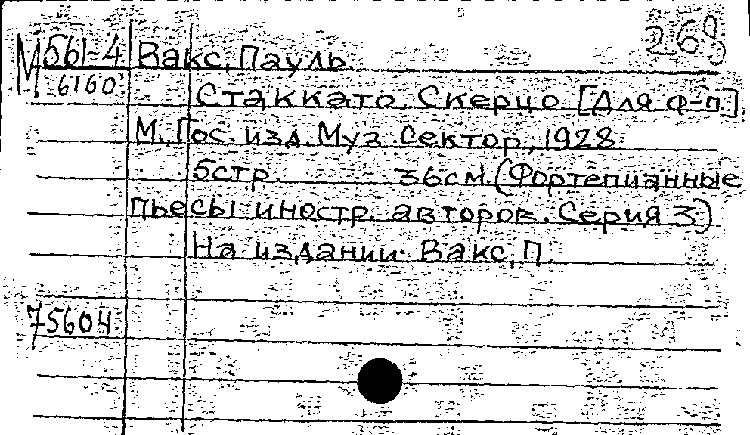 268
М 561-4 Вакс, Пауль
6160 Стаккато. Скерцо [Для ф-п]
М., Гос. изд. Муз. сектор, 1928
5стр. 36см. (Фортепианные
пьесы иностр. авторов. Серия 3)
На издании: Вакс, П.
75604